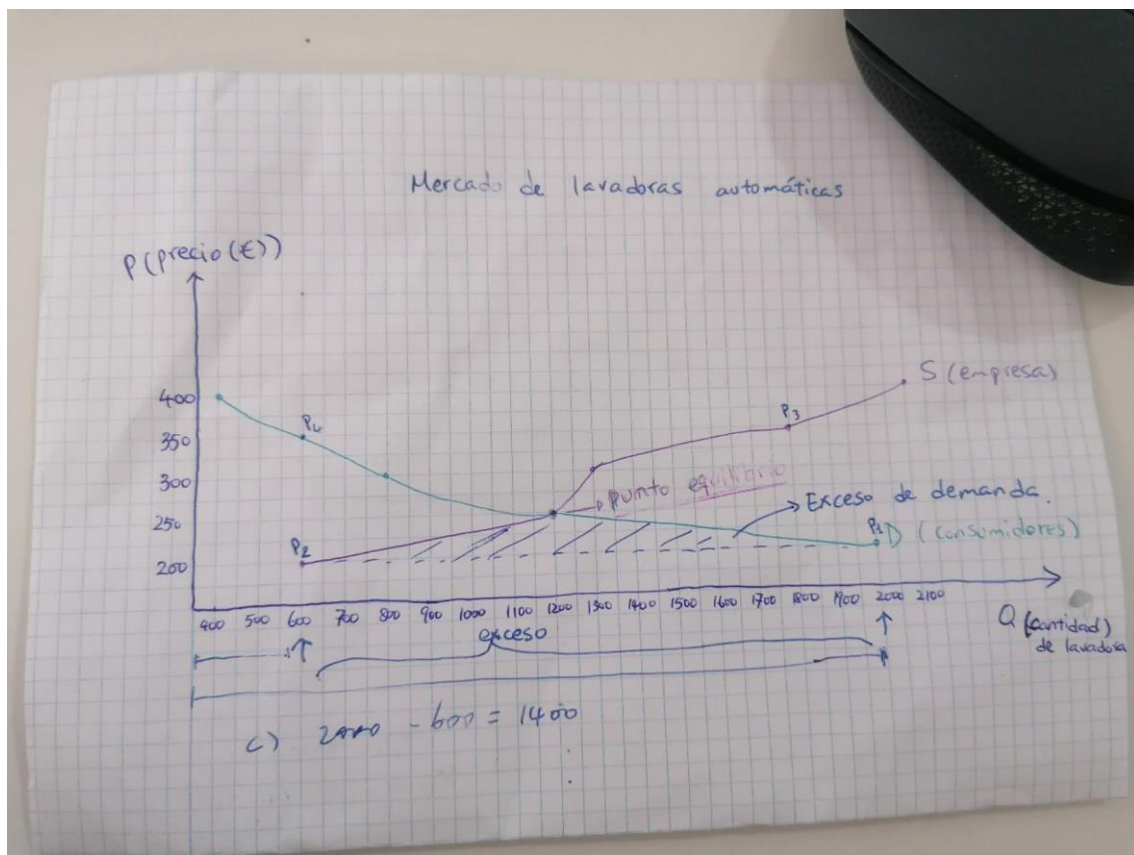 Mercado de lavadoras automáticas
P (precio (€))
400
350
300
250
200
P4
P2
P3
S (empresa)
punto equilibrio
Exceso de demanda.
P1
D (consumidores)
400 500 600 700 800 900 1000 1100 1200 1300 1400 1500 1600 1700 1800 1900 2000 2100
Q (cantidad)
de lavadora
exceso
c) 2000 - 600 = 1400